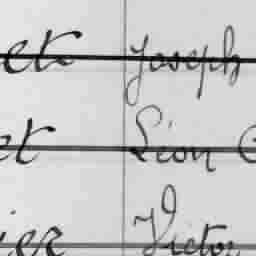 et Joseph
et Léon
ier Victor